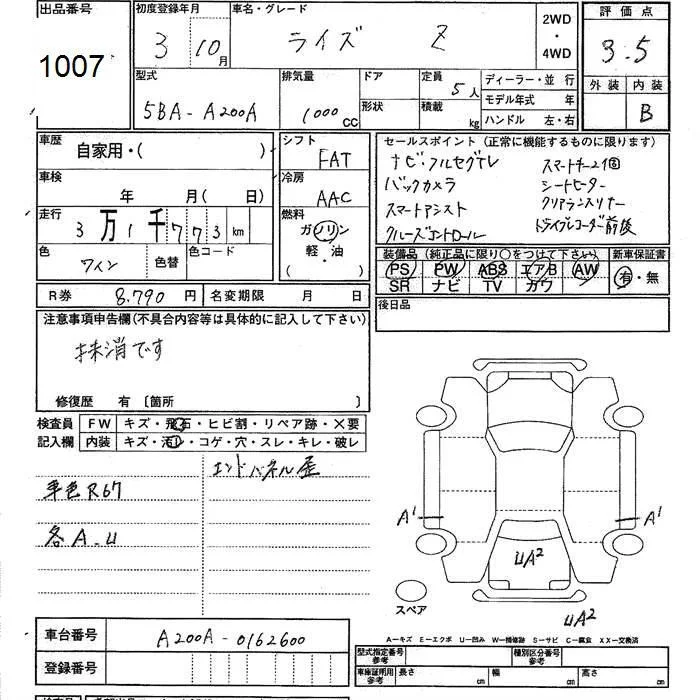 出品番号
1007
初度登録年月
3 10月
車名・グレード
ライズ Z
2WD
・
4WD
評価点
3.5
外装 内装
B
型式
5BA-A200A
排気量
1000 CC
ドア
形状
定員 5人
積載 kg
ディーラー・並行
モデル年式 年
ハンドル 左・右
車歴 自家用・( )
車検 年 月( 日)
走行 3万1千773km
色 ワイン 色替 色コード
シフト
FAT
冷房
AAC
燃料
ガソリン
軽・油
( )
セールスポイント(正常に機能するものに限ります)
ナビ・フルセグTV スマートキー2個
バックカメラ シートヒーター
スマートアシスト クリアランスソナー
クルーズコントロール ドライブレコーダー前後
装備品(純正品に限り○をつけて下さい) 新車保証書
PS PW ABS エアB AW 有・無
SR ナビ TV カワ
後日品
R券 8,790円 名変期限 月 日
注意事項申告欄(不具合内容等は具体的に記入して下さい)
抹消です
修復歴 有〔箇所 〕
検査員 FW キズ・飛石・ヒビ割・リペア跡・X要
記入欄 内装 キズ・汚レ・コゲ・穴・スレ・キレ・破レ
エンドパネル歪
車色R67
各A.U
A1
A1
UA2
スペア
UA2
A-キズ E-エクボ U-凹み W-補修跡 S-サビ C-腐食 XX-交換済
車台番号 A200A-0162600
登録番号
型式指定番号 参考
種別区分番号 参考
車庫証明用 参考 長さ cm 幅 cm 高さ cm